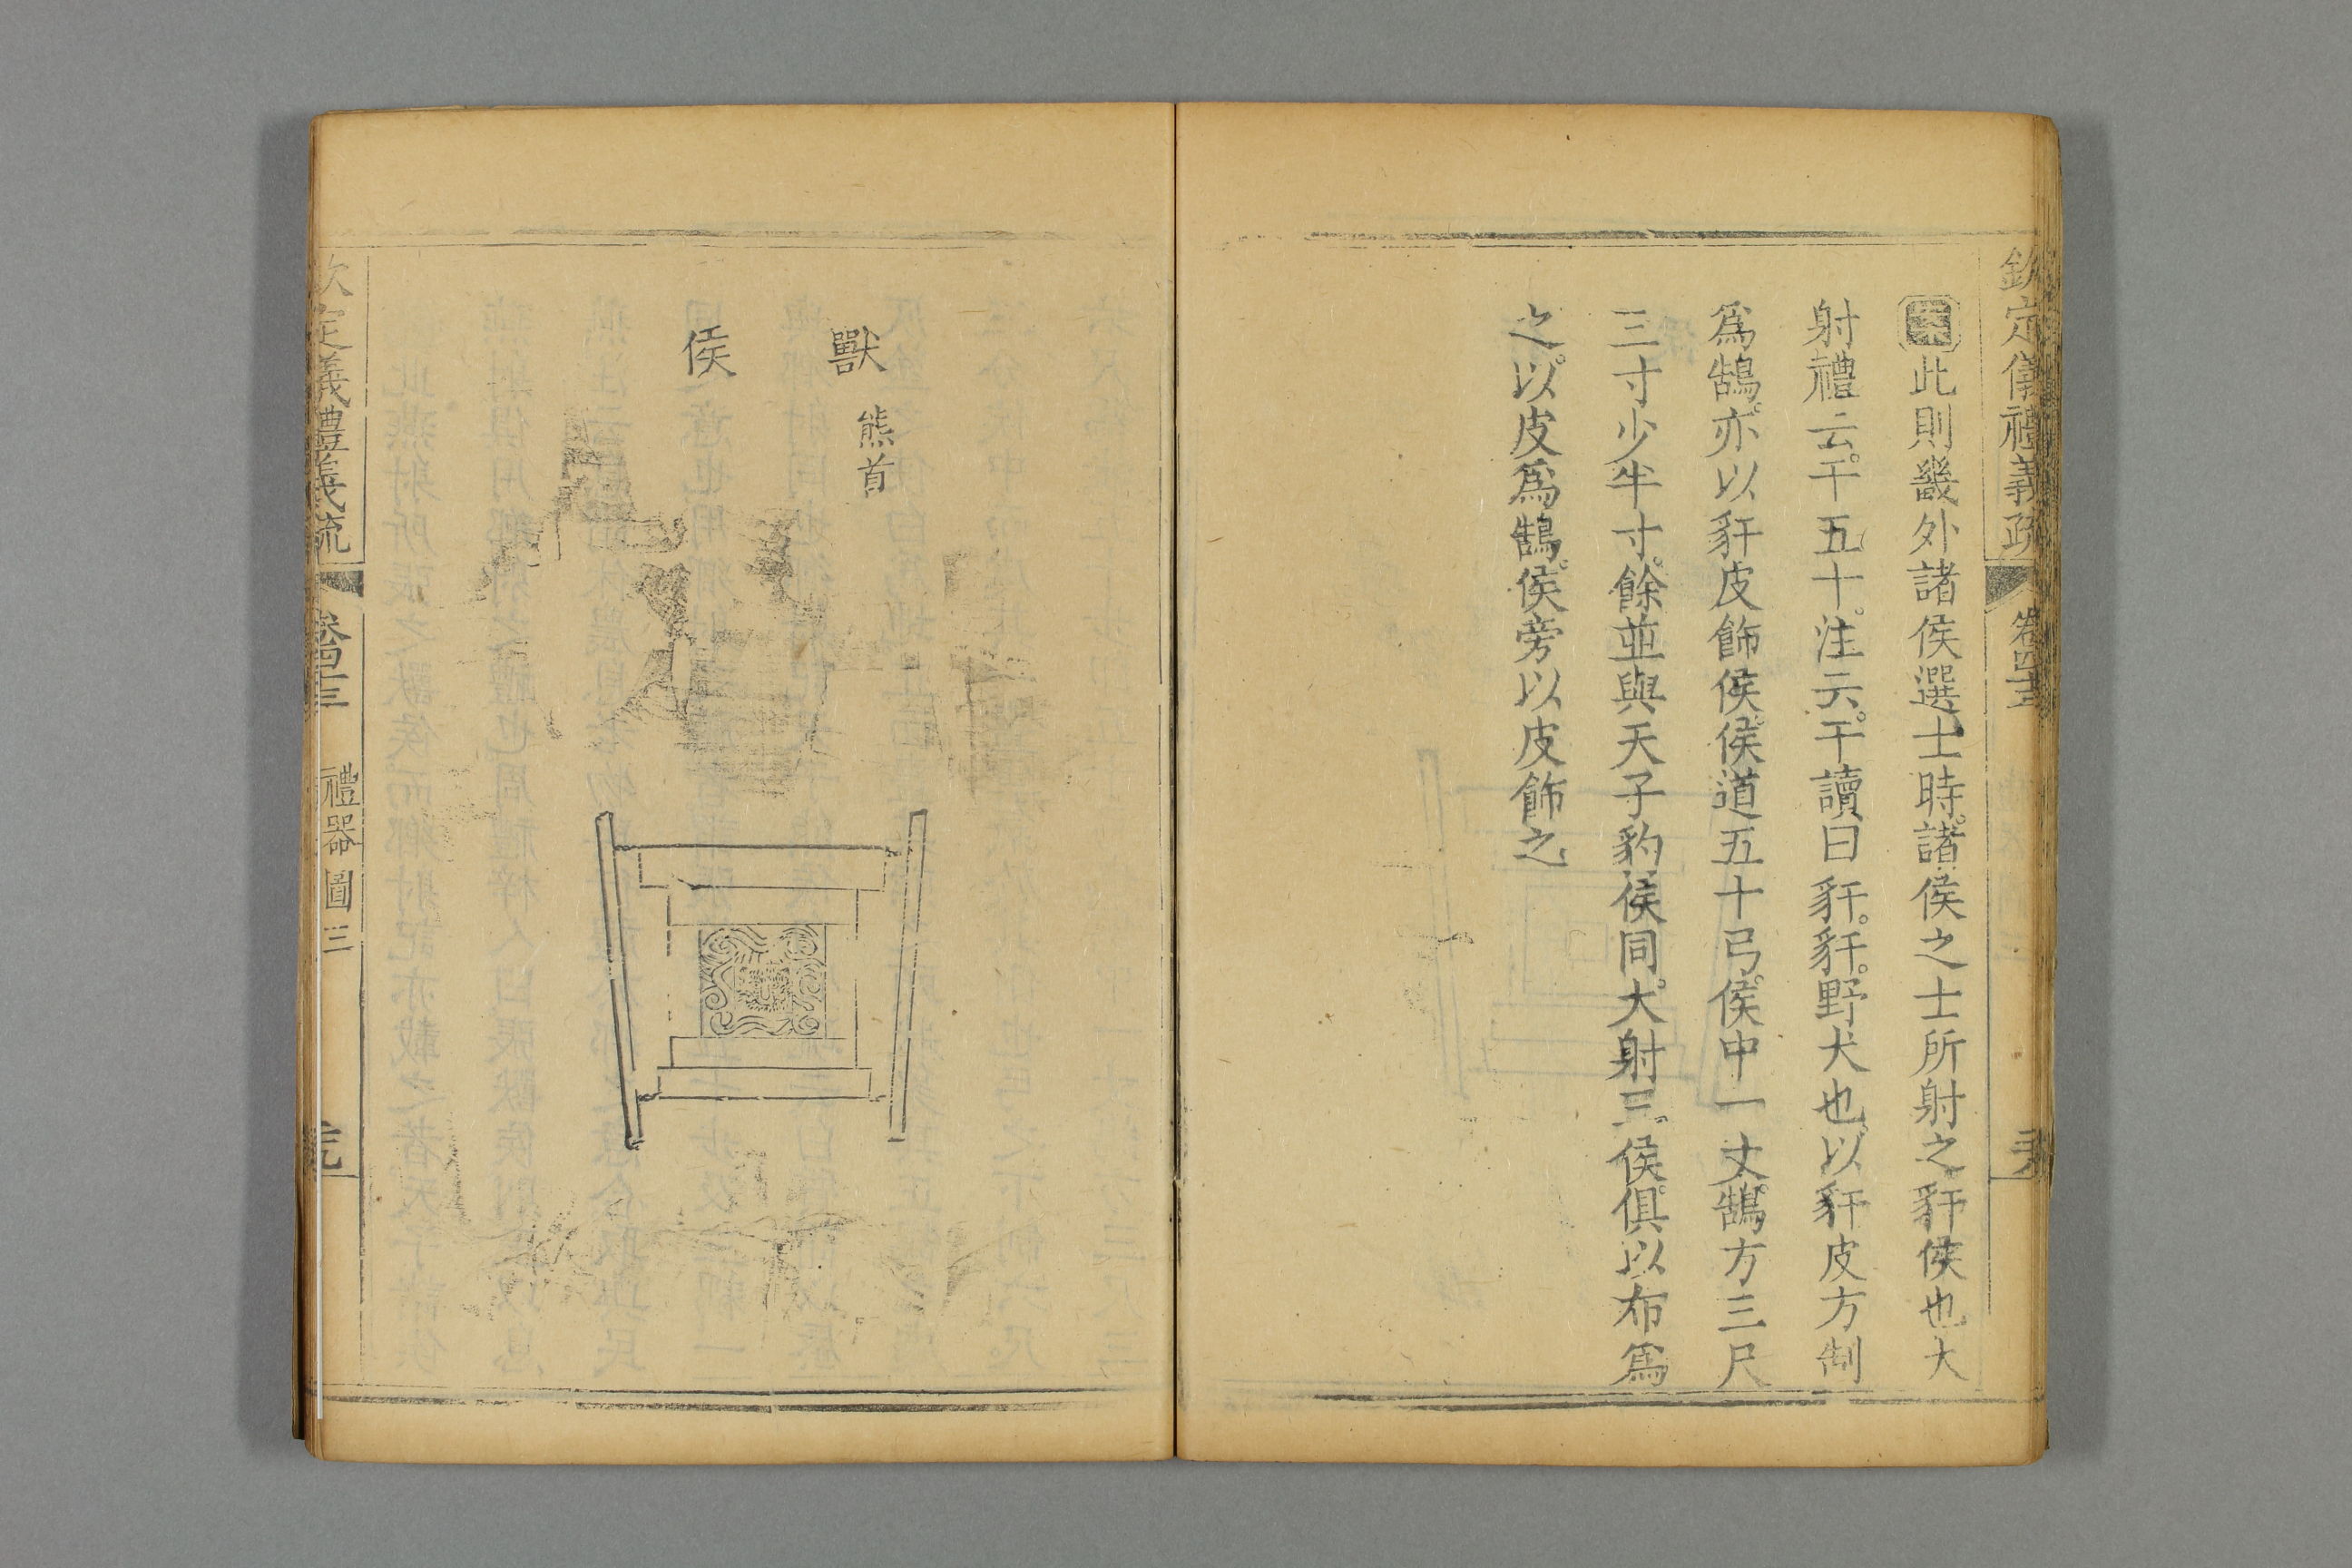 欽定儀禮義疏 卷四十三
案此則畿外諸侯選士時。諸侯之士所射之豻侯也大
射禮云。干五十。注云。干讀曰豻。豻。野犬也。以豻皮方制
爲鵠。亦以豻皮飾侯。侯道五十弓。侯中一丈。鵠方三尺
三寸少半寸。餘並與天子豹侯同。大射三侯。俱以布爲
之。以皮爲鵠。侯旁以皮飾之
獸
熊首
侯
欽定儀禮義疏 卷四十三 禮器圖三